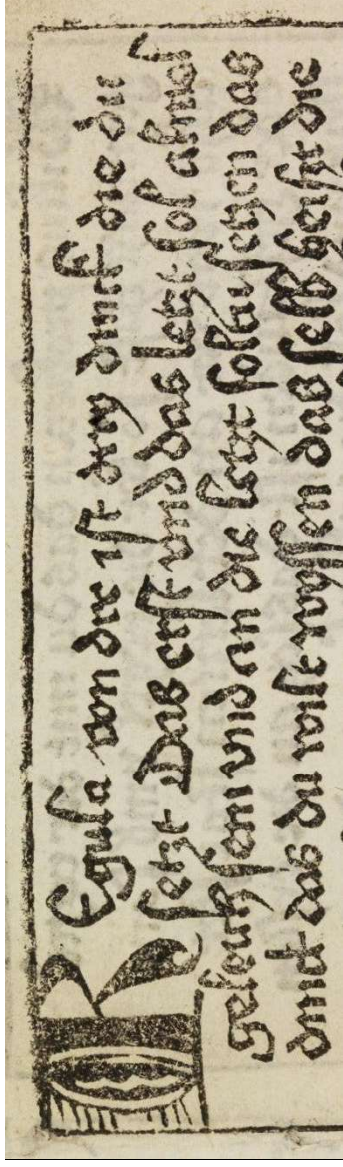 REgula von dre ist drey dinck die du
setzt Das erst vnd das letzt sol alweg
geleich sein vnd an die letzt soltu setzen das
dinck das du wilt wyssen das selb heist die